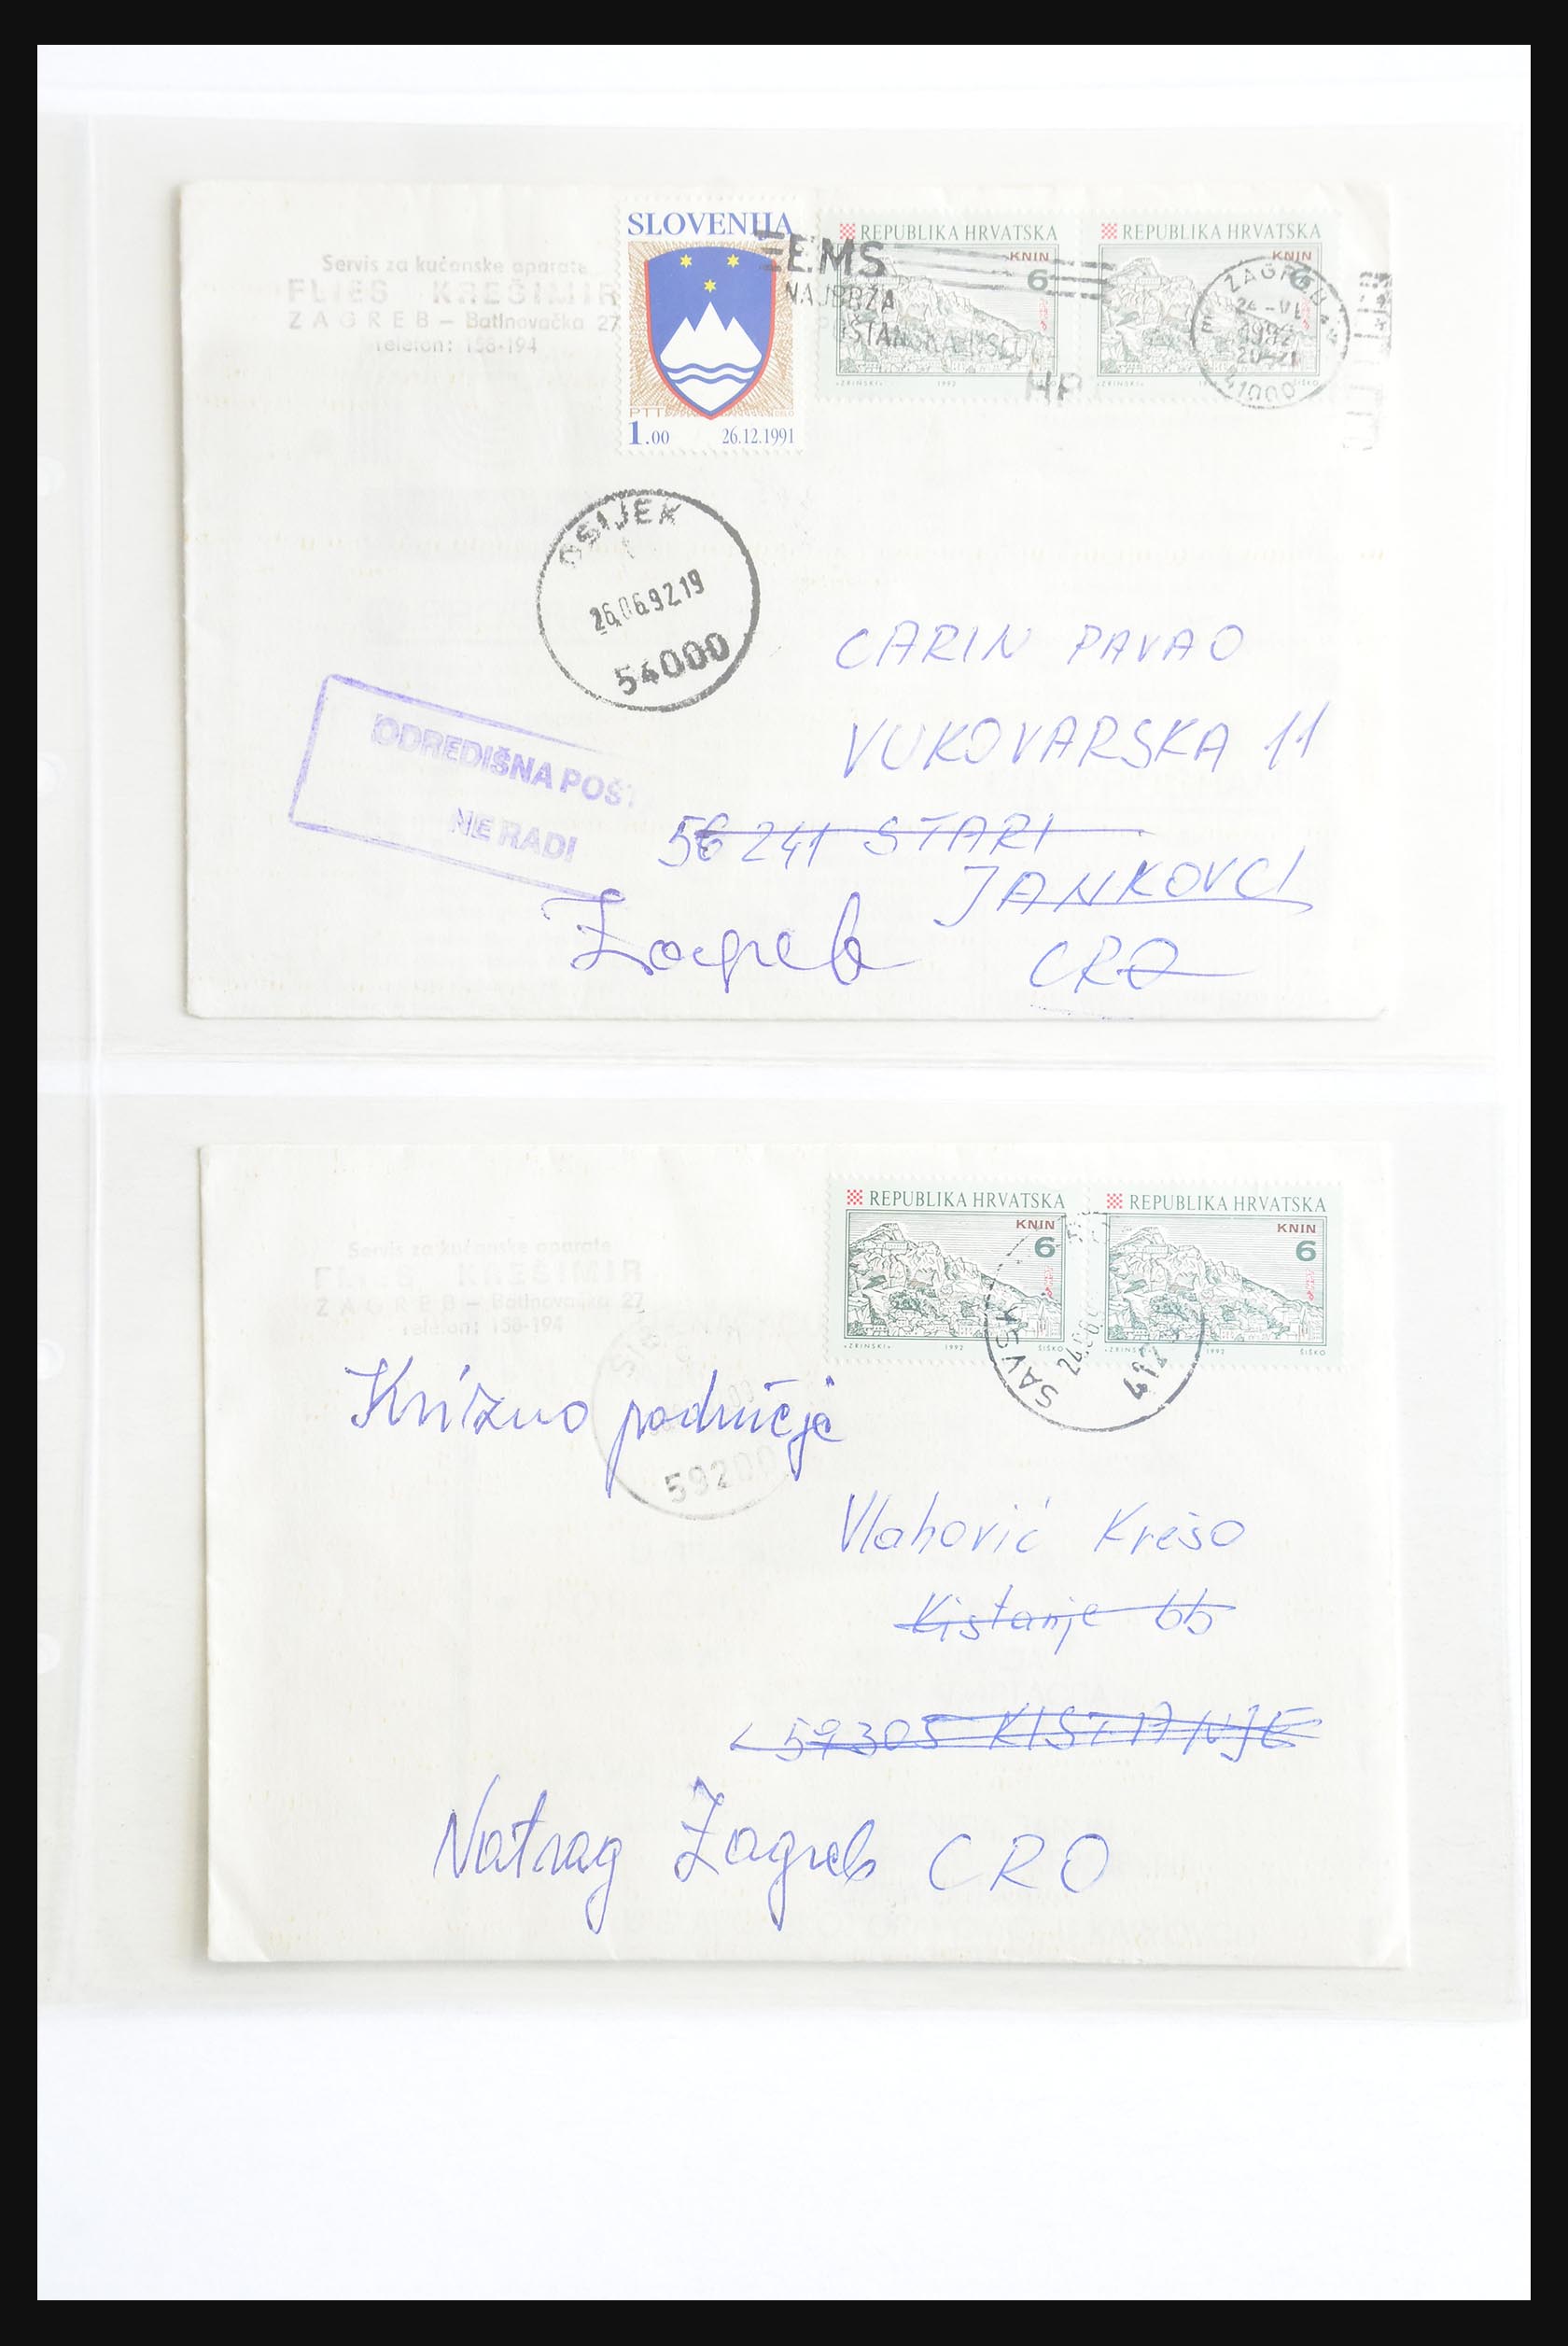 Servis za kućanske aparate
FLIES KREŠIMIR
ZAGREB – Batinovačka 27
Telefon: 158-194
SLOVENIJA
PTT
1.00 26.12.1991
REPUBLIKA HRVATSKA
KNIN
6
•ZRINSKI• 1992 ŠIŠKO
REPUBLIKA HRVATSKA
KNIN
6
•ZRINSKI• ŠIŠKO
EMS
NAJBRŽA
HP
ZAGREB
24-VI
1992
20-21
41000
OSIJEK
26.06.92.19
54000
ODREDIŠNA POŠT
NE RADI
CARIN PAVAO
VUKOVARSKA 11
56241 STARI
JANKOVCI
Zagreb
CRO
REPUBLIKA HRVATSKA
KNIN
6
•ZRINSKI• 1992 ŠIŠKO
REPUBLIKA HRVATSKA
KNIN
6
•ZRINSKI• 1992 ŠIŠKO
Servis za kućanske aparate
FLIES KREŠIMIR
ZAGREB – Batinovačka 27
Telefon: 158-194
59200
Krizno područje
Vlahović Krešo
Kistanje bb
59305 KISTANJE
Natrag Zagreb CRO